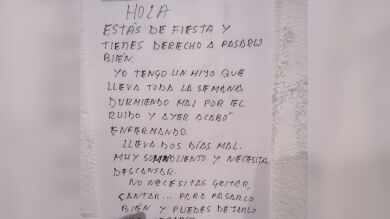 HOLA
ESTÁS DE FIESTA Y
TIENES DERECHO A PASARLO
BIEN.
YO TENGO UN HIJO QUE
LLEVA TODA LA SEMANA
DURMIENDO MAL POR EL
RUIDO Y AYER ACABÓ
ENFERMANDO.
LLEVA DOS DÍAS MAL.
MUY SOMNOLIENTO Y NECESITA
DESCANSAR.
NO NECESITAS GRITAR,
CANTAR... PARA PASARLO
BIEN Y PUEDES DEJARLO